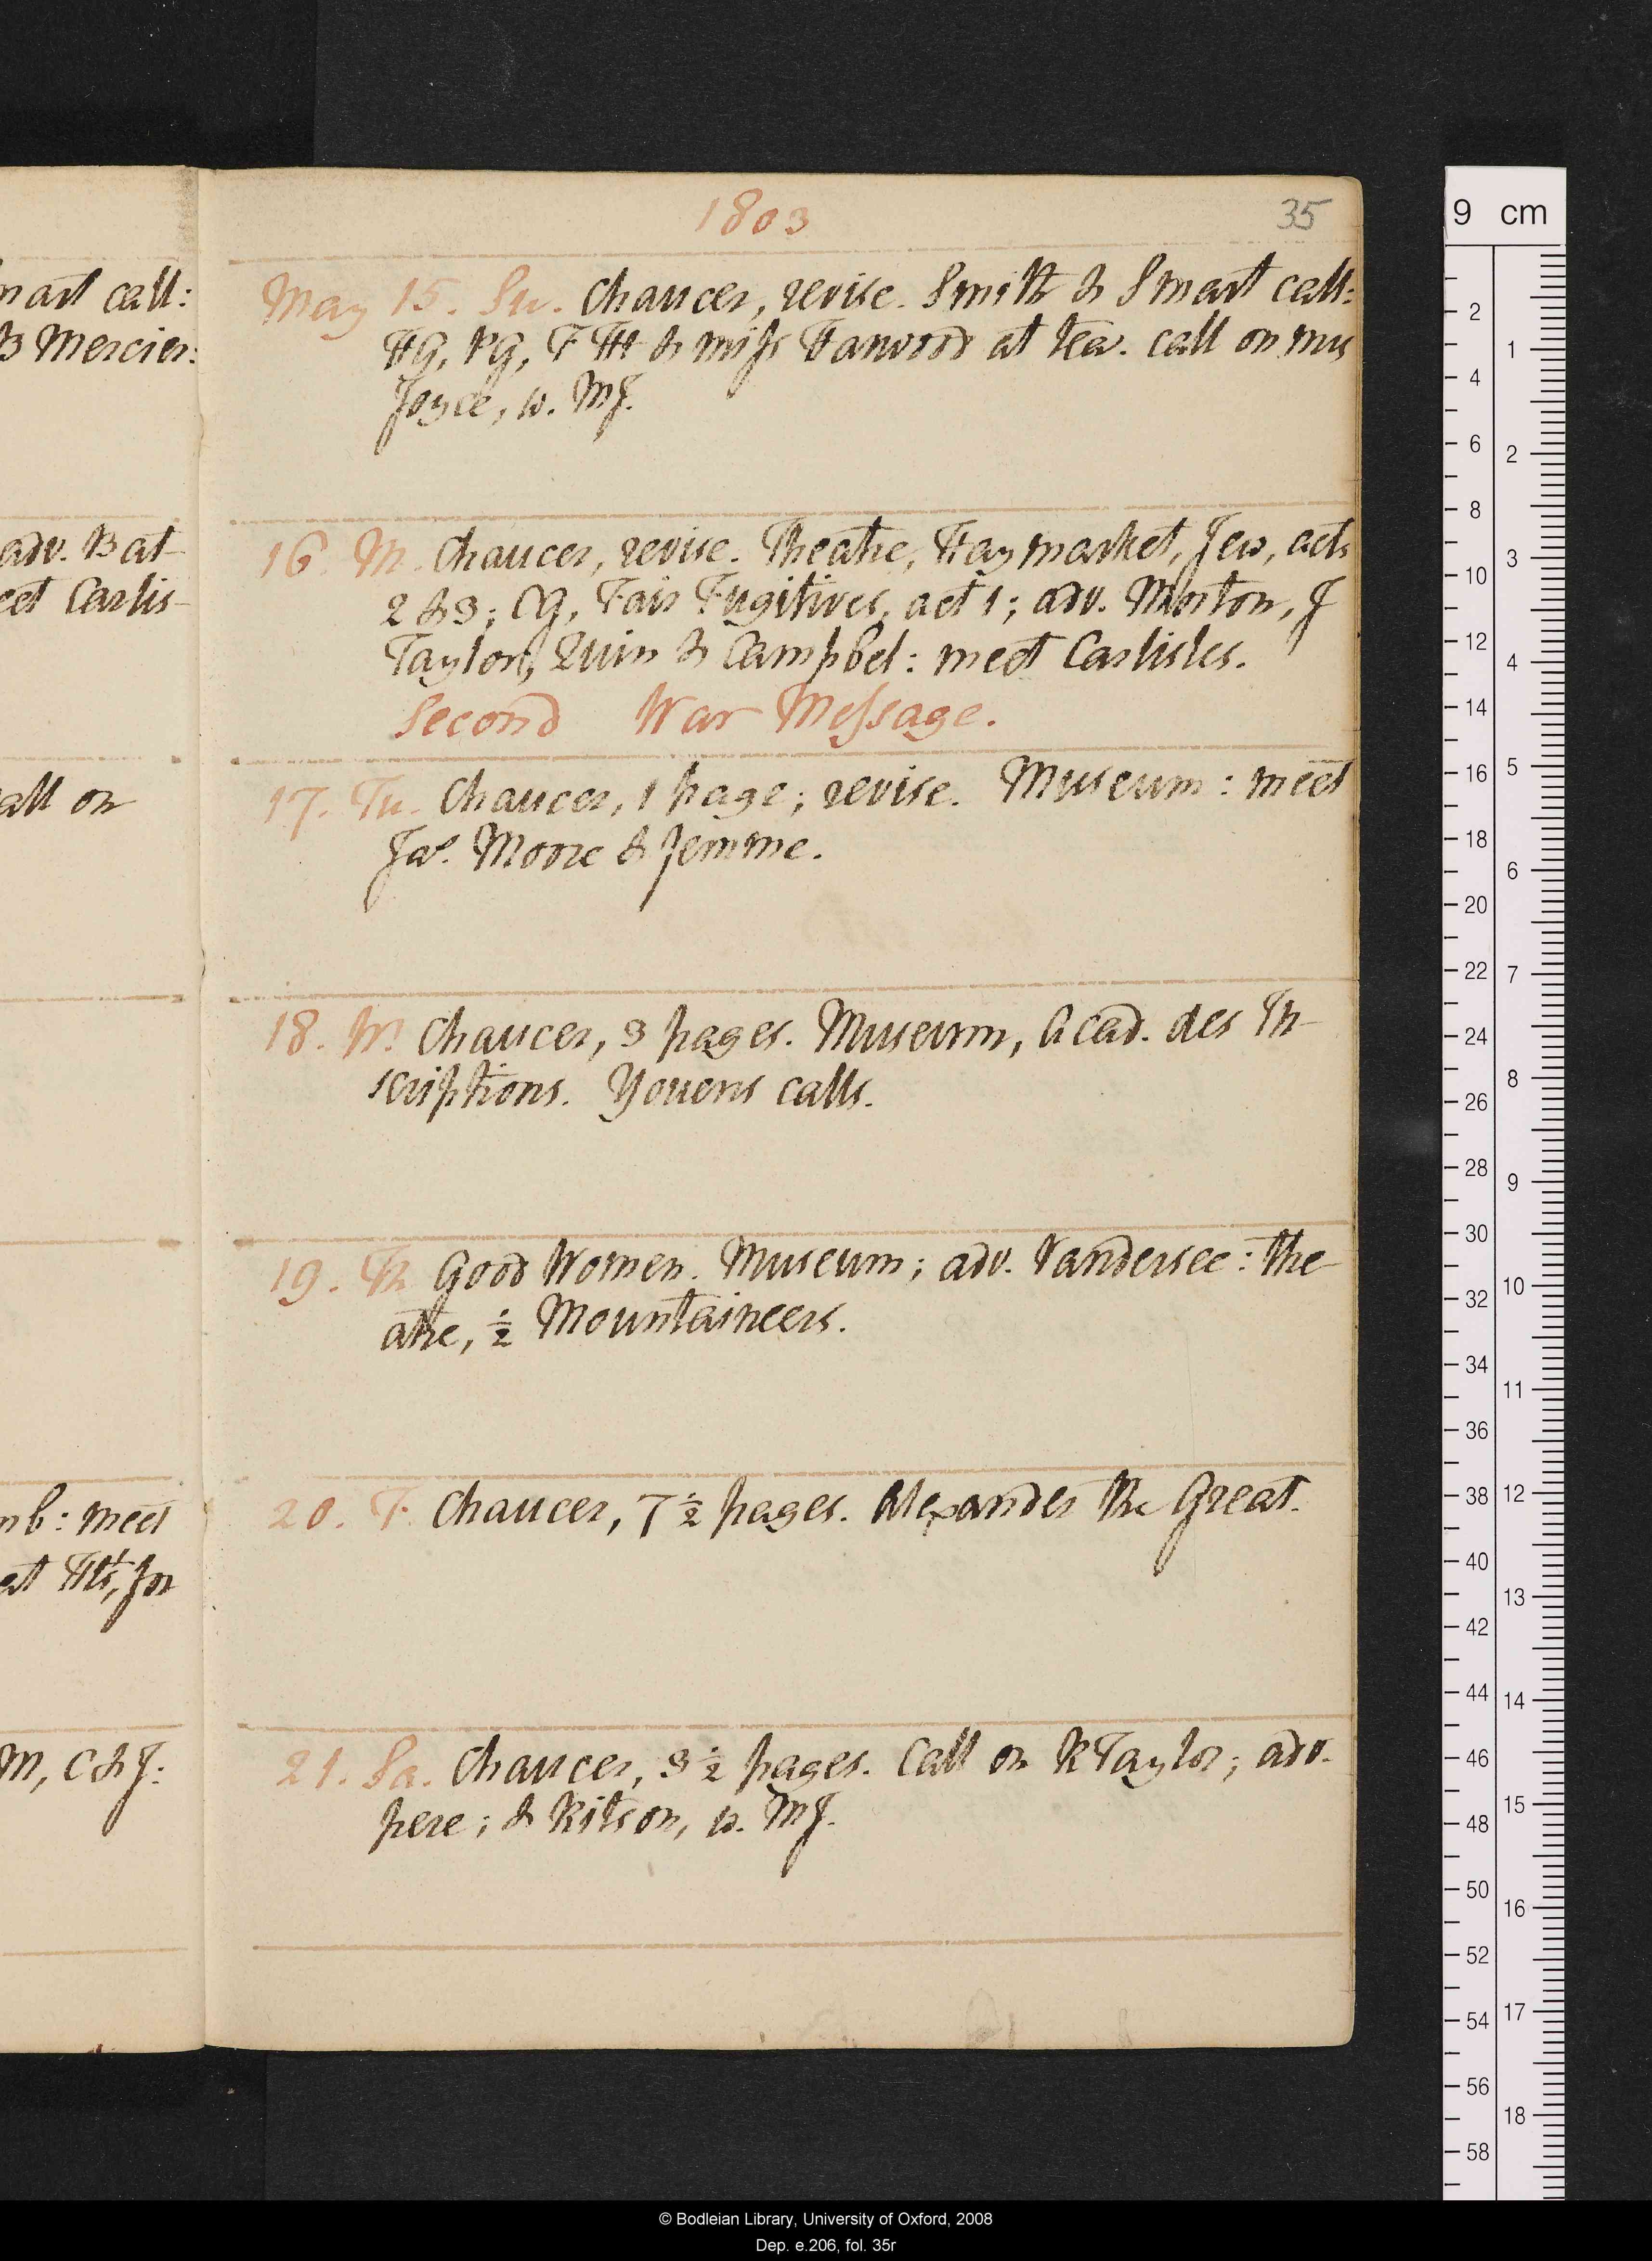 1803
35
May 15. Su. Chaucer, revise. Smith & Smart call:
HG, PG, F Ht & miss Harwood at tea. call on mrs
Joyce, w. MJ.
16. M. Chaucer, revise. Theatre, Haymarket, Jew, acts
2 & 3; CG, Fair Fugitives, act 1; adv. Morton, J
Taylor, Quin & Campbel: meet Carlisles.
Second War Message.
17. Tu. Chaucer, 1 page; revise. Museum: meet
Jas. Moore & Jemme.
18. W. Chaucer, 3 pages. Museum, Acad. des In-
scriptions. Youens calls.
19. Th. Good Women. Museum; adv. Vandersee: The-
atre, ½ Mountaineers.
20. F. Chaucer, 7 ½ pages. Alexander the Great.
21. Sa. Chaucer, 3 ½ pages. Call on R Taylor; adv.
pere; & Ritson, w. MJ.
mart call:
B Mercier:
adv. Bat-
eet Carlis-
all on
mb: meet
at Hts, for
M, C & J:
9 cm
2
4
6
8
10
12
14
16
18
20
22
24
26
28
30
32
34
36
38
40
42
44
46
48
50
52
54
56
58
1
2
3
4
5
6
7
8
9
10
11
12
13
14
15
16
17
18
© Bodleian Library, University of Oxford, 2008
Dep. e.206, fol. 35r